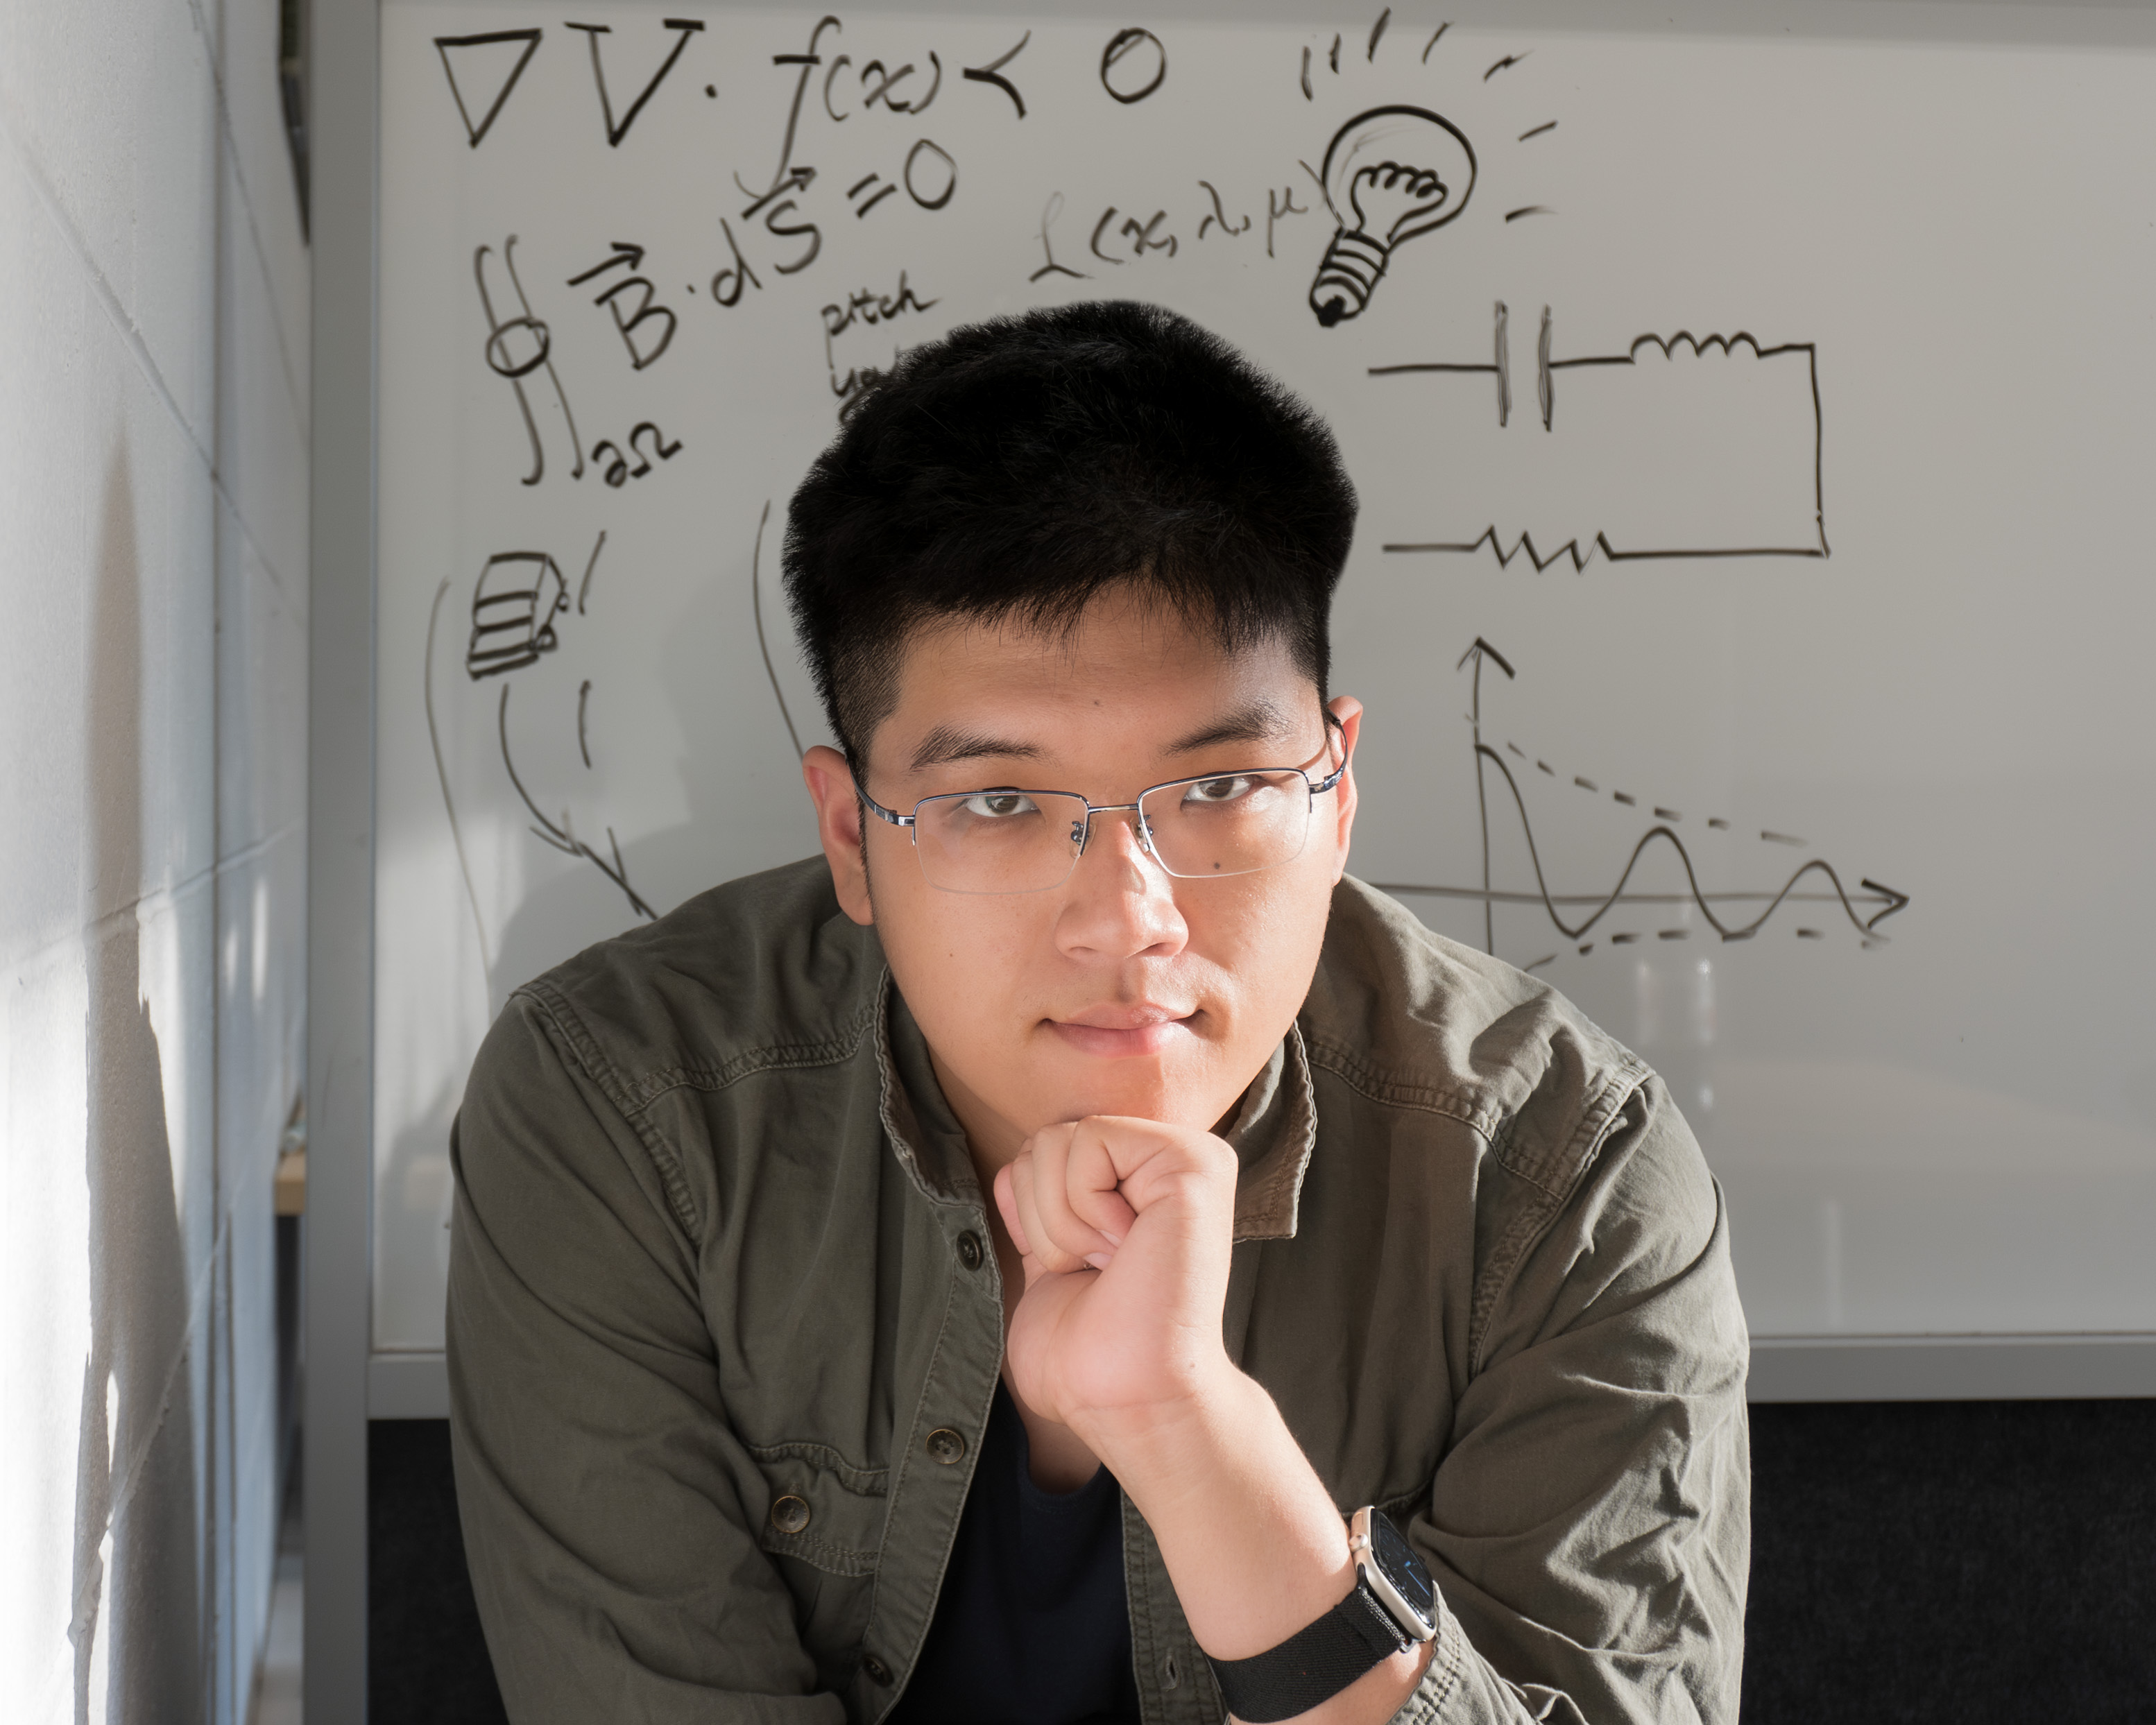 ∇ ∇ · f(x) < 0
∯∂Ω B⃗ · dS⃗ = 0
L(x, λ, μ)
pitch